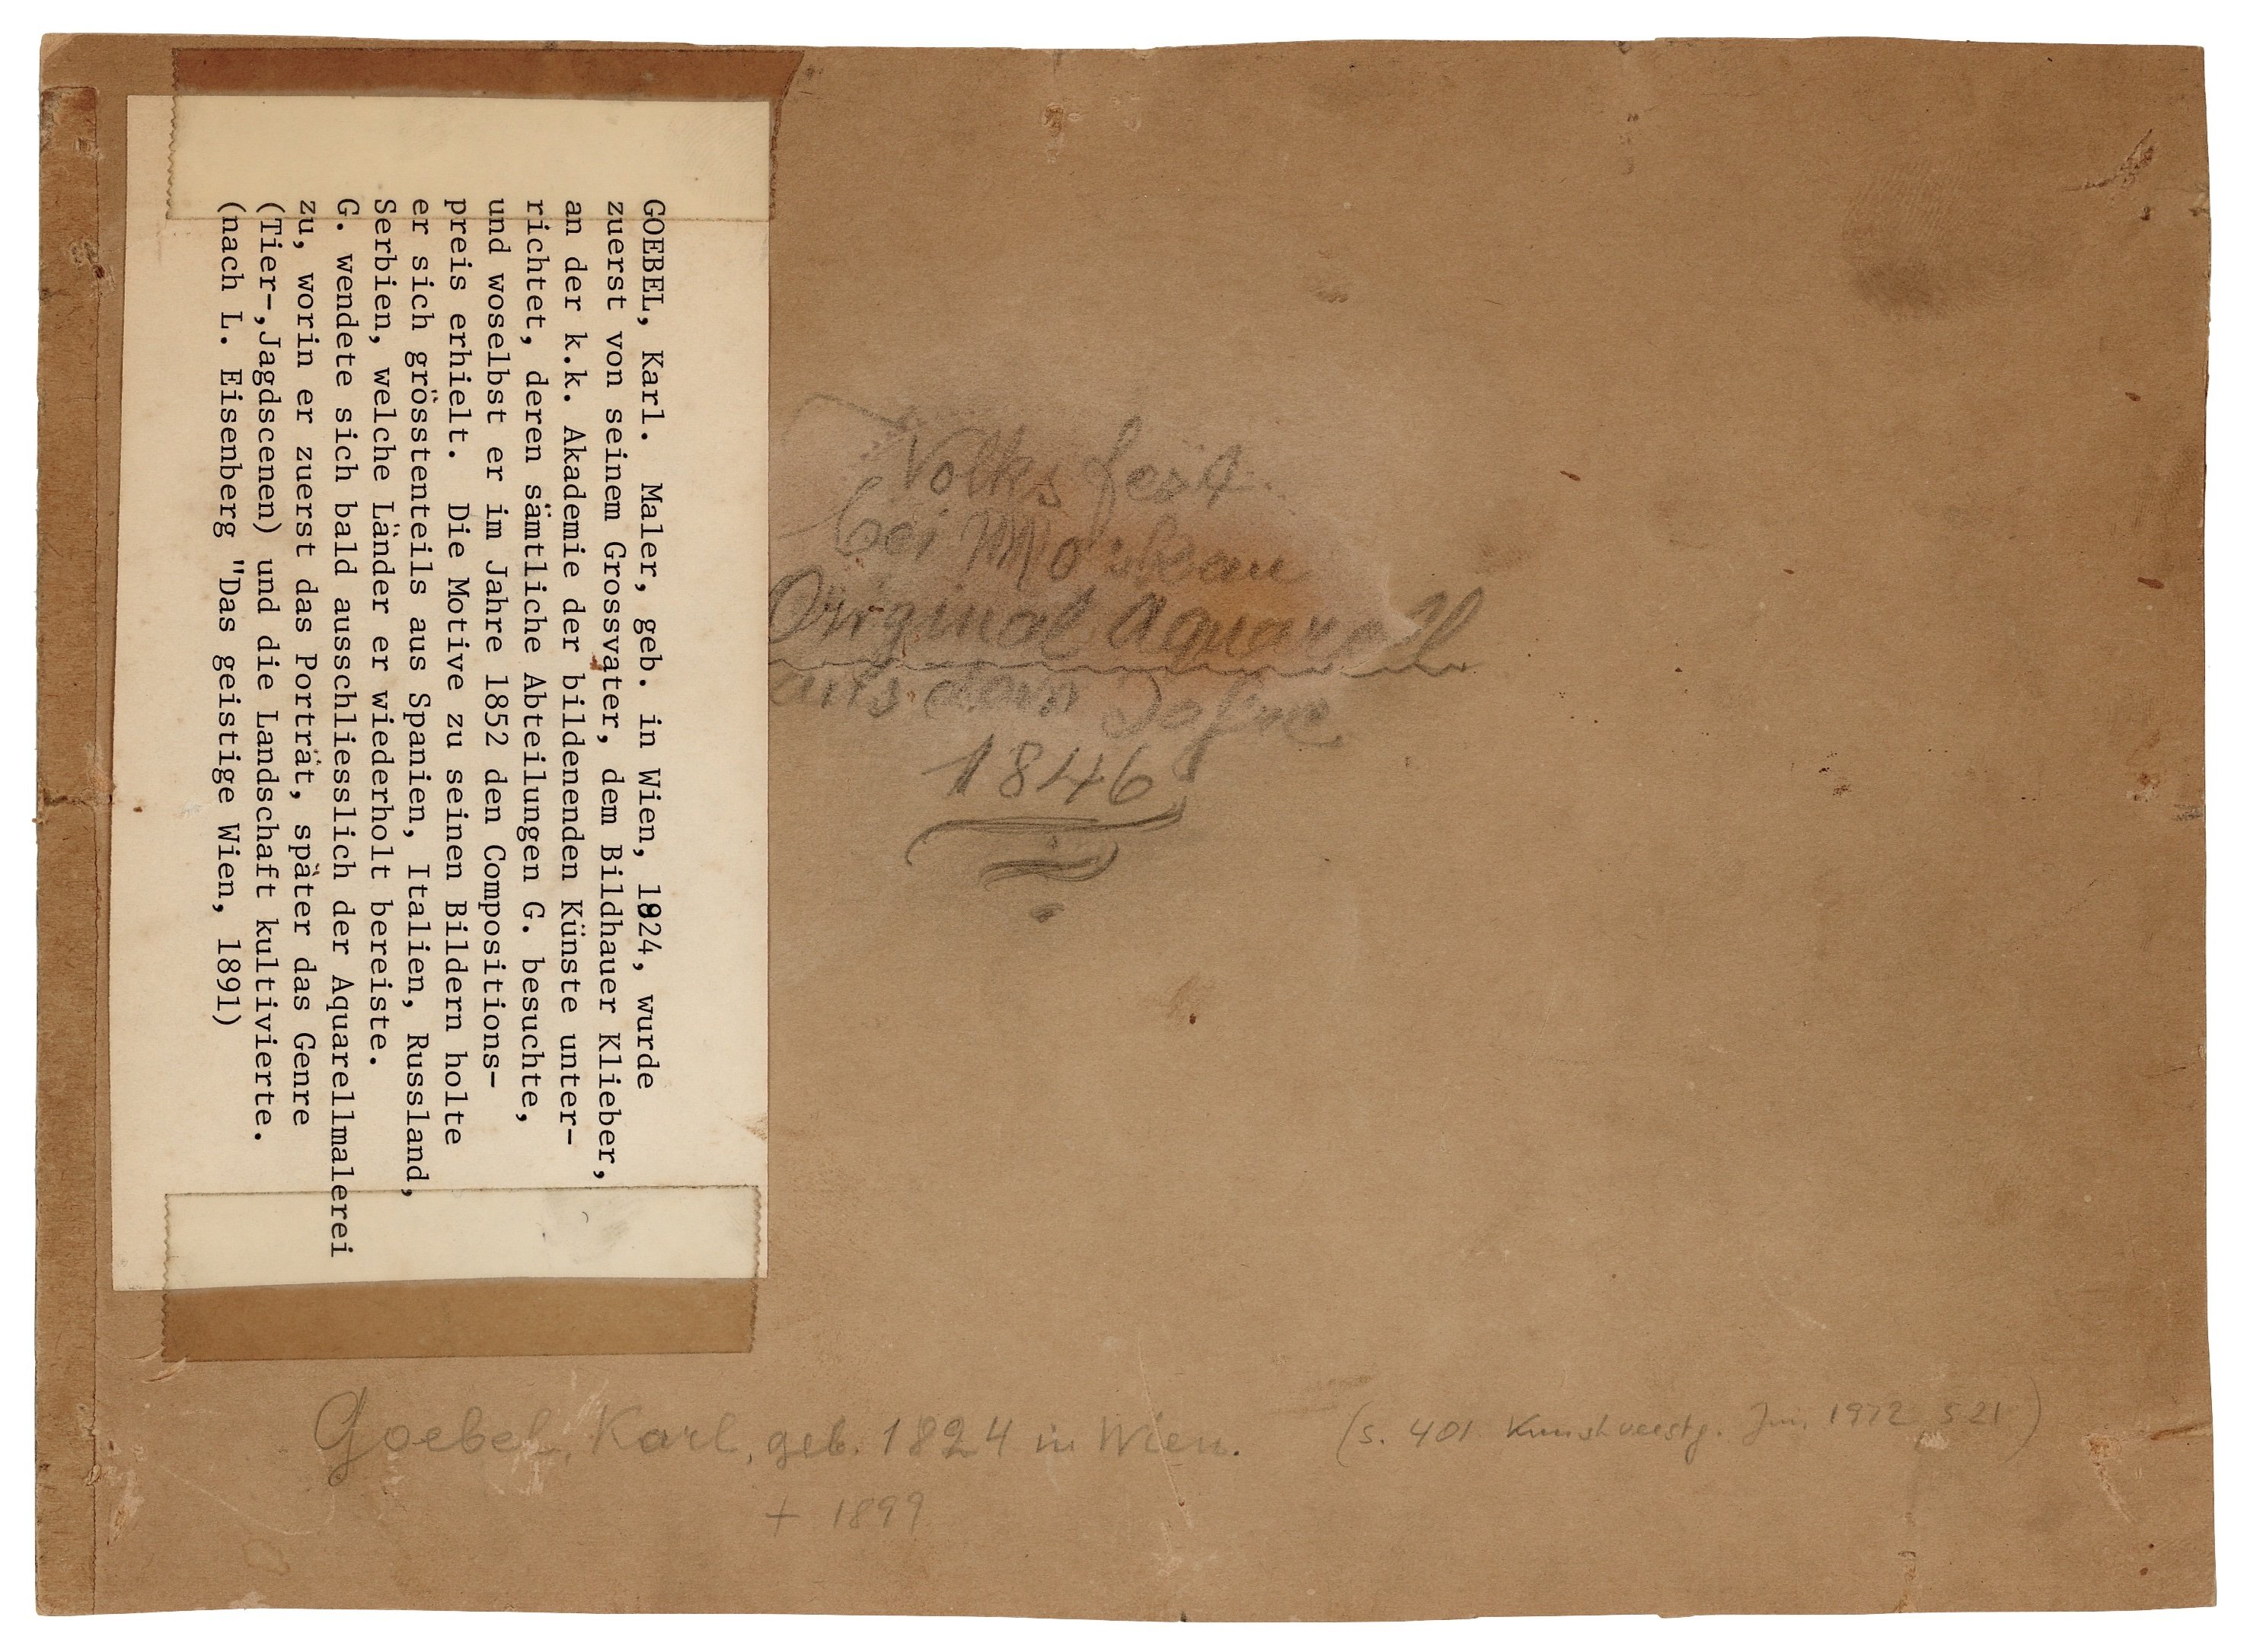 GOEBEL, Karl. Maler, geb. in Wien, 1824, wurde
zuerst von seinem Grossvater, dem Bildhauer Klieber,
an der k.k. Akademie der bildenenden Künste unter-
richtet, deren sämtliche Abteilungen G. besuchte,
und woselbst er im Jahre 1852 den Compositions-
preis erhielt. Die Motive zu seinen Bildern holte
er sich grösstenteils aus Spanien, Italien, Russland,
Serbien, welche Länder er wiederholt bereiste.
G. wendete sich bald ausschliesslich der Aquarellmalerei
zu, worin er zuerst das Porträt, später das Genre
(Tier-,Jagdscenen) und die Landschaft kultivierte.
(nach L. Eisenberg "Das geistige Wien, 1891)
Volksfest
bei Moskau
Original Aquarell
aus dem Jahre
1846
Goebel, Karl, geb. 1824 in Wien.
+ 1899
(s. 401 Jun. 1972 S 21)